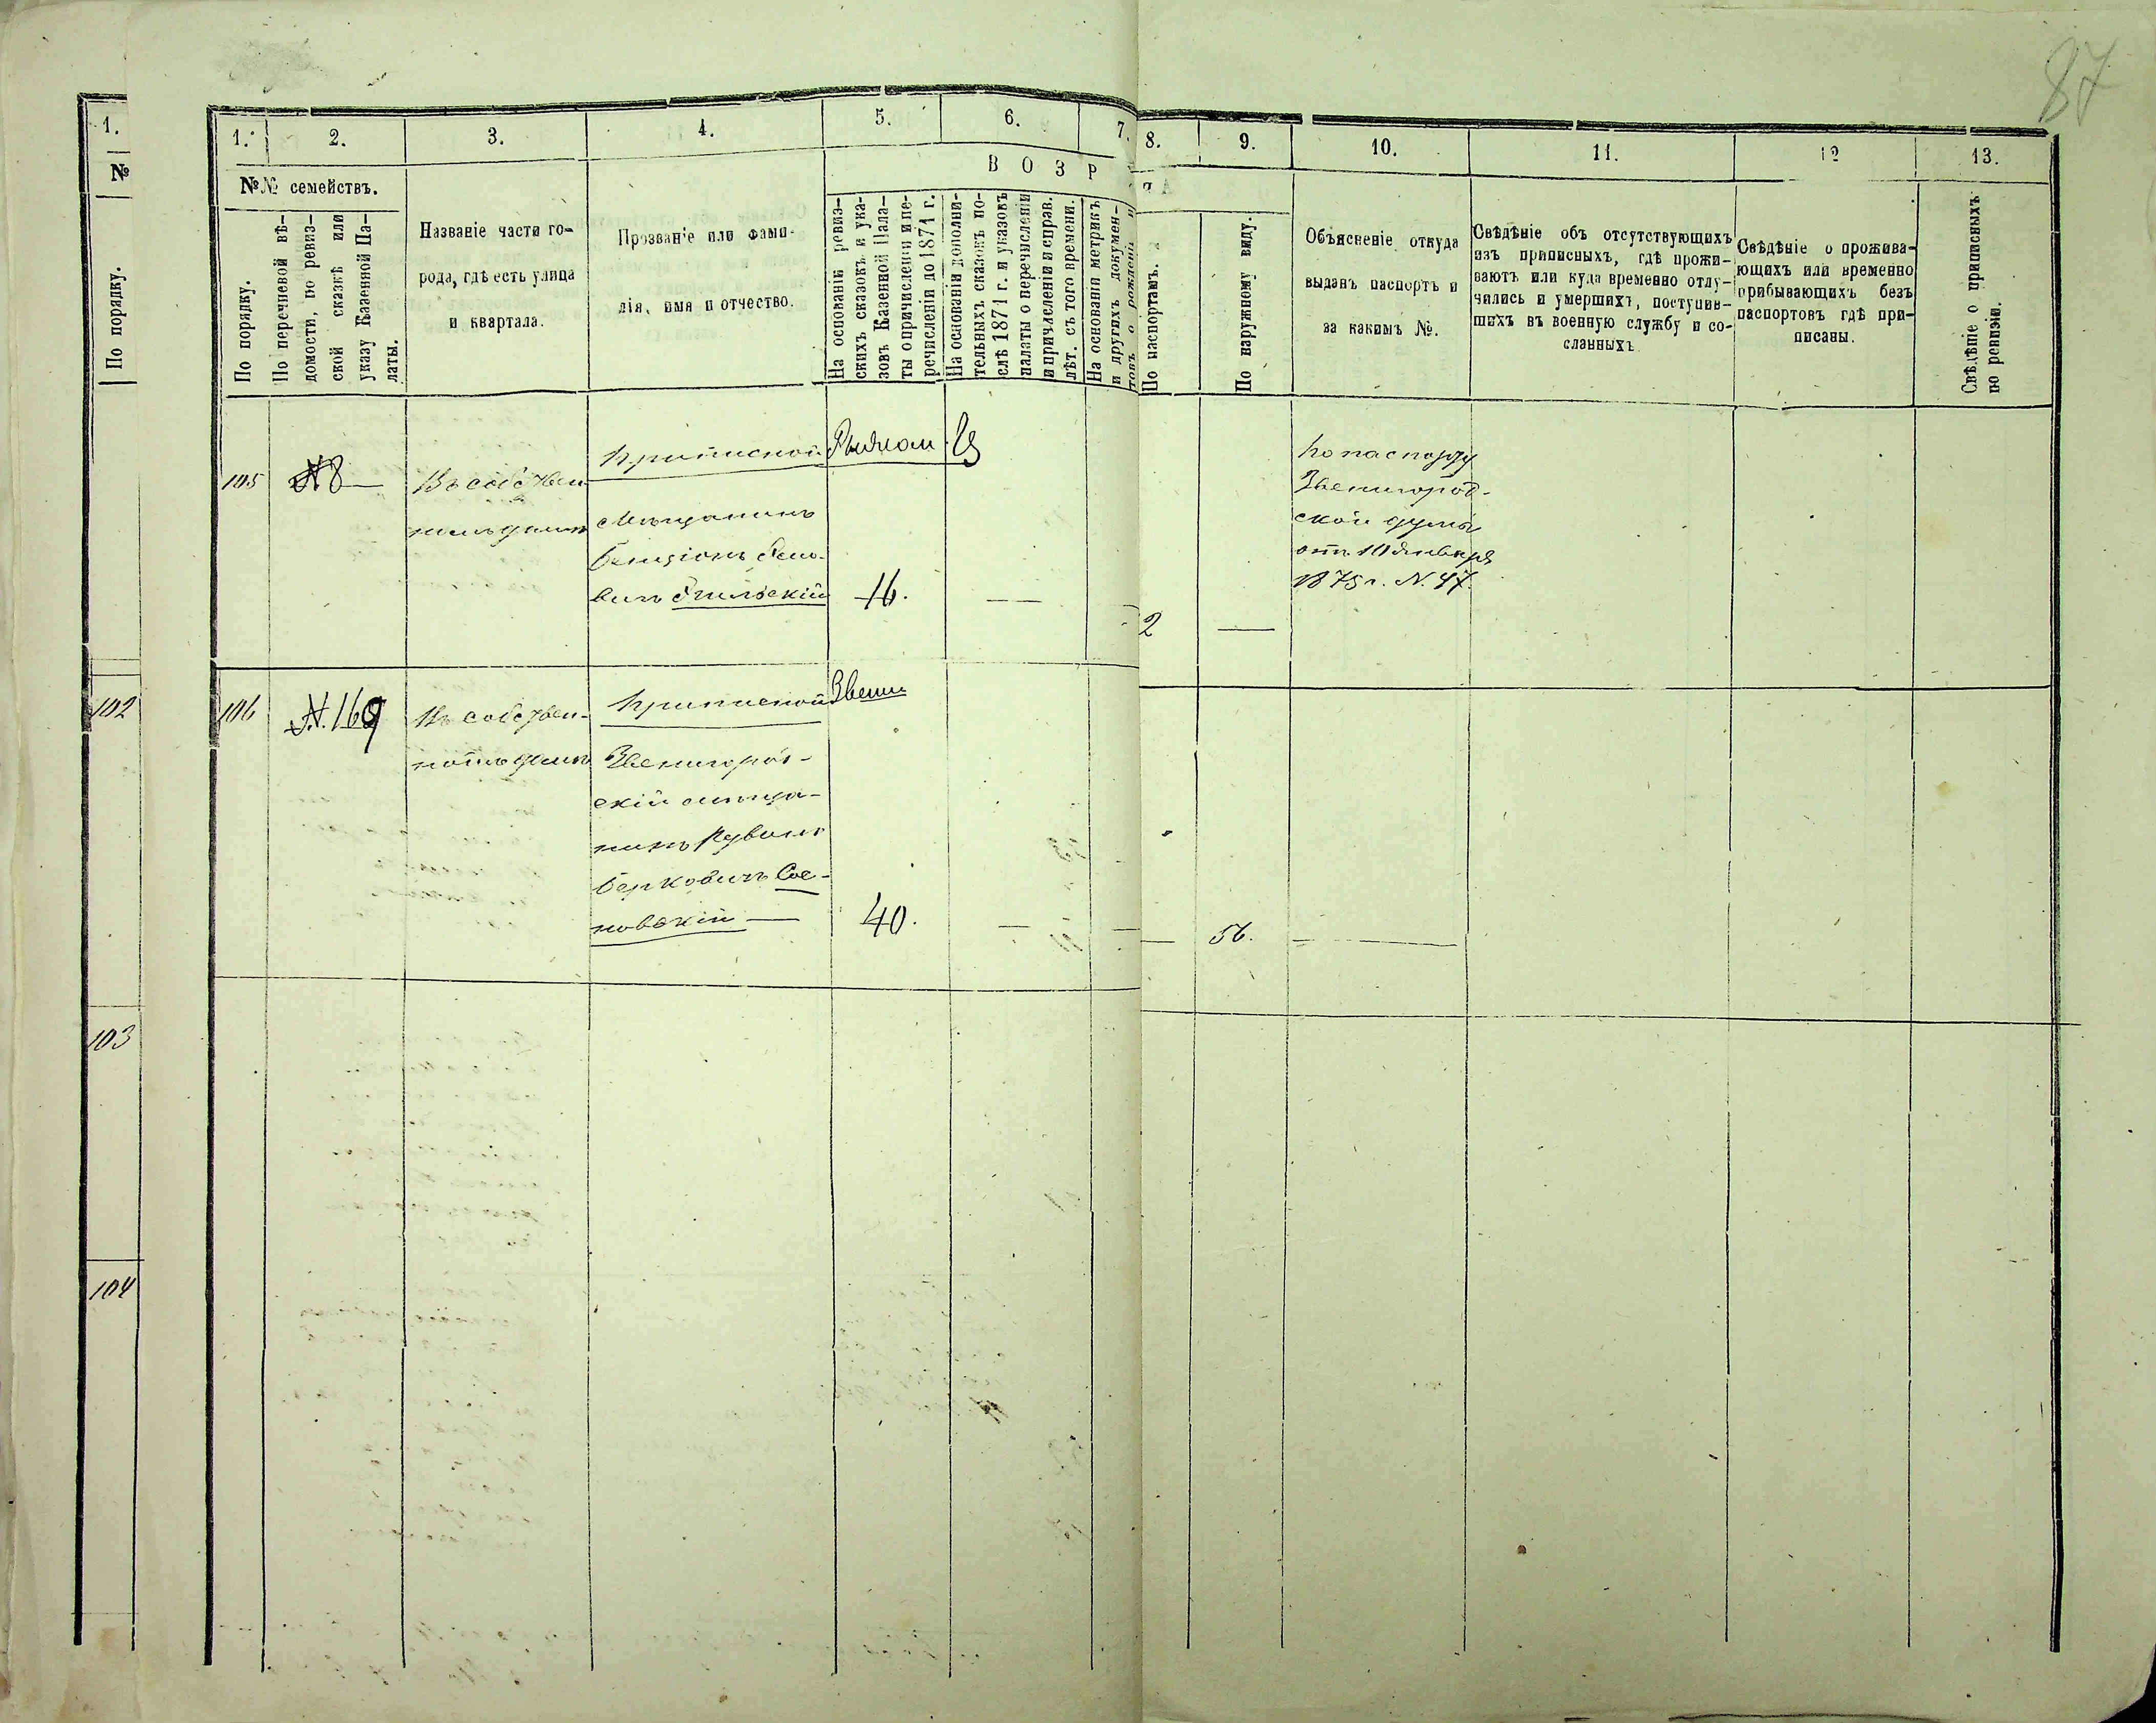 87
1.
№
По порядку.
102
103
104
1. 2. 3. 4. 5. 6. 7. 8. 9. 10. 11. 12 13.
№№ семействъ.
По порядку.
По перечневой вѣ-
домости, по ревиз-
ской сказкѣ или
указу Казенной Па-
латы.
Названіе части го-
рода, гдѣ есть улица
и квартала.
Прозваніе или фами-
лія, имя и отчество.
ВОЗР
На основаніи ревиз-
скихъ сказокъ и ука-
зовъ Казенной Пала-
ты о причисленіи и пе-
речисленіи до 1871 г.
На основаніи дополни-
тельныхъ сказокъ по-
слѣ 1871 г. и указовъ
палаты о перечисленіи
и причисленіи и справ.
лѣт. съ того времени.
На основаніи метрикъ
и другихъ докумен-
товъ о рожденіи и
По паспортамъ.
По наружному виду.
Объясненіе откуда
выданъ паспортъ и
за какимъ №.
Свѣдѣніе объ отсутствующихъ
изъ приписныхъ, гдѣ прожи-
ваютъ или куда временно отлу-
чились и умершихъ, поступив-
шихъ въ военную службу и со-
сланныхъ.
Свѣдѣніе о прожива-
ющихъ или временно
прибывающихъ безъ
паспортовъ гдѣ при-
писаны.
Свѣдѣніе о приписныхъ
по ревизіи.
105 №8
Въ собствен-
номъ домѣ
Приписной
Мѣщанинъ
16.
2
По паспорту
Звенигород-
ской думы
отъ 10 Января
1875 г. №. 47.
106 №. 169
Въ собствен-
номъ домѣ
Приписной Звени
Звенигород-
скій мѣща-
нинъ Рувинъ
Берковичъ Сос-
новскій
40.
56.